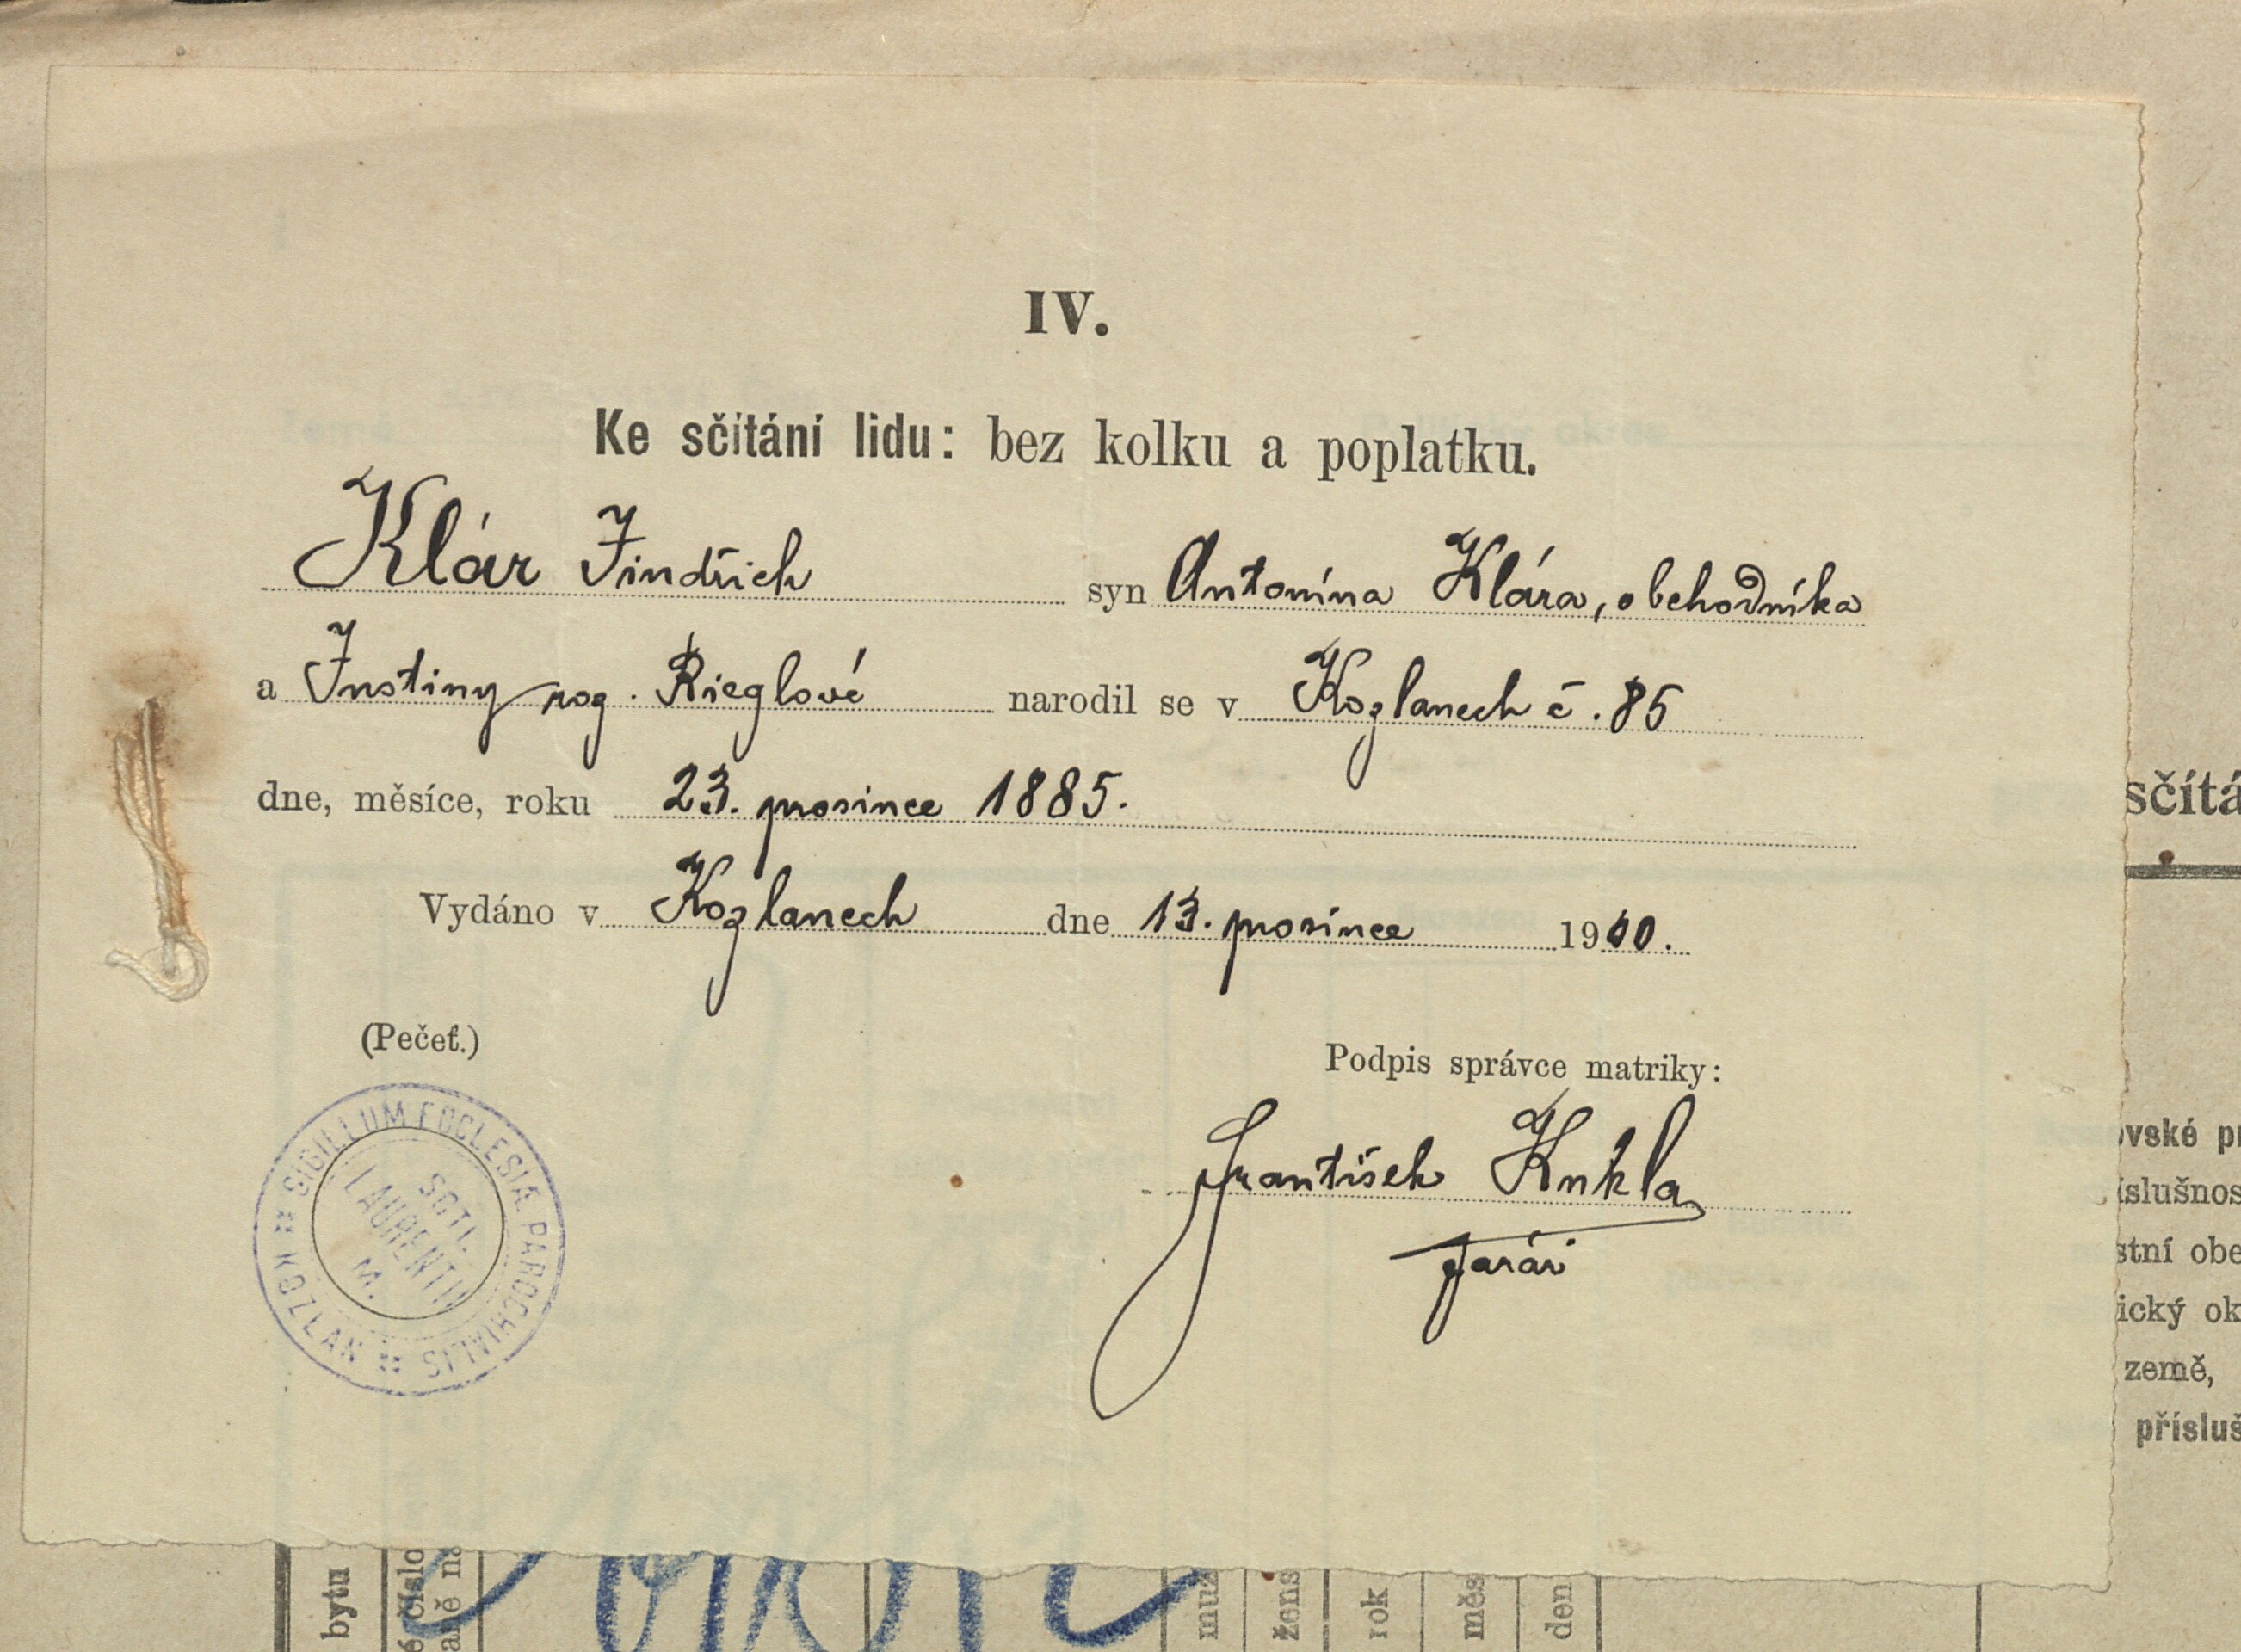 IV.
Ke sčítání lidu: bez kolku a poplatku.
Klár Jindřich syn Antonína Klára, obchodníka
a Justiny roz. Rieglové narodil se v Kozlanech č. 85
dne, měsíce, roku 23. prosince 1885.
Vydáno v Kozlanech dne 13. prosince 1910.
(Pečeť.)
Podpis správce matriky:
František Kukla
farář
SIGILLUM ECCLESIÆ PAROCHIALIS KOZLAN
SCTI.
LAURENTII
M.
sčítá
vské př
íslušnos
stní obe
ický ok
země,
příslu
bytu
číslo
muž
žens
rok
měs
den